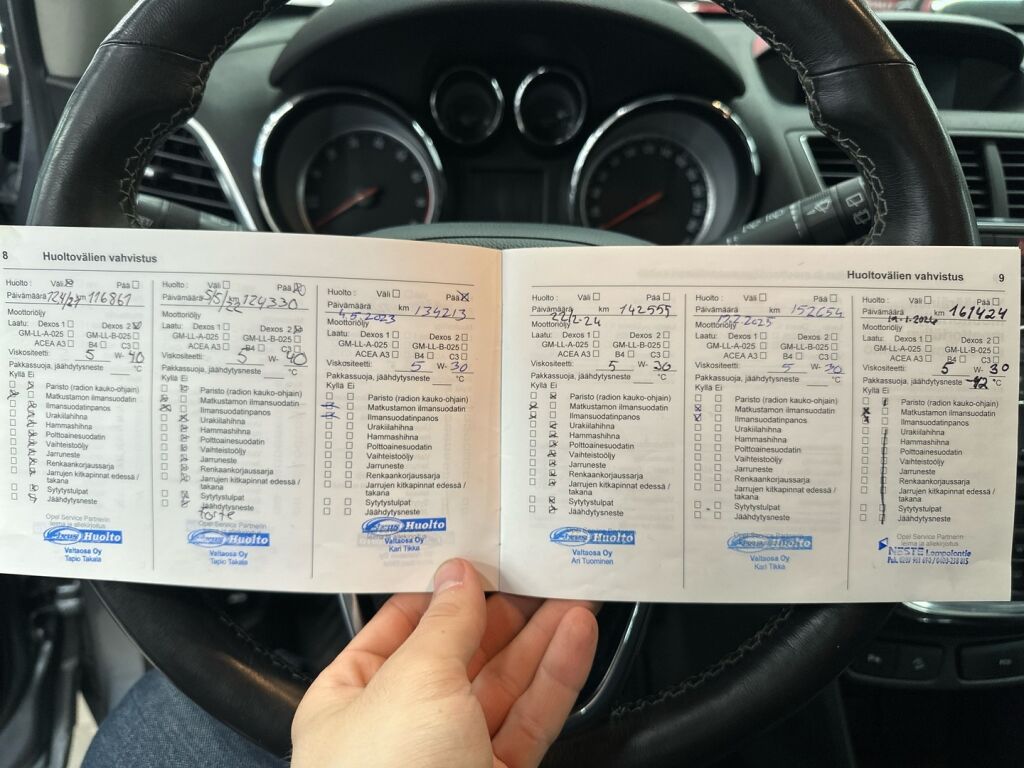 8 Huoltovälien vahvistus
Huolto: Väli Pää
Päivämäärä km 116861
Moottoriöljy
Laatu: Dexos 1 Dexos 2
GM-LL-A-025 GM-LL-B-025
ACEA A3 B4 C3
Viskositeetti: 5 W- 40
Pakkassuoja, jäähdytysneste °C
Kyllä Ei
Paristo (radion kauko-ohjain)
Matkustamon ilmansuodatin
Ilmansuodatinpanos
Urakiilahihna
Hammashihna
Polttoainesuodatin
Vaihteistoöljy
Jarruneste
Renkaankorjaussarja
Jarrujen kitkapinnat edessä /
takana
Sytytystulpat
Jäähdytysneste
Opel Service Partnerin
leima ja allekirjoitus
Huolto
Valtaosa Oy
Tapio Takala
Huolto: Väli Pää
Päivämäärä 5/5/22 km 124330
Moottoriöljy
Laatu: Dexos 1 Dexos 2
GM-LL-A-025 GM-LL-B-025
ACEA A3 B4 C3
Viskositeetti: 5 W- 40
Pakkassuoja, jäähdytysneste °C
Kyllä Ei
Paristo (radion kauko-ohjain)
Matkustamon ilmansuodatin
Ilmansuodatinpanos
Urakiilahihna
Hammashihna
Polttoainesuodatin
Vaihteistoöljy
Jarruneste
Renkaankorjaussarja
Jarrujen kitkapinnat edessä /
takana
Sytytystulpat
Jäähdytysneste
Opel Service Partnerin
Huolto
Valtaosa Oy
Tapio Takala
Huolto: Väli Pää
Päivämäärä 4.5.2023 km 134213
Moottoriöljy
Laatu: Dexos 1 Dexos 2
GM-LL-A-025 GM-LL-B-025
ACEA A3 B4 C3
Viskositeetti: 5 W- 30
Pakkassuoja, jäähdytysneste °C
Kyllä Ei
Paristo (radion kauko-ohjain)
Matkustamon ilmansuodatin
Ilmansuodatinpanos
Urakiilahihna
Hammashihna
Polttoainesuodatin
Vaihteistoöljy
Jarruneste
Renkaankorjaussarja
Jarrujen kitkapinnat edessä /
takana
Sytytystulpat
Jäähdytysneste
Huolto
Valtaosa Oy
Kari Tikka
Huoltovälien vahvistus 9
Huolto: Väli Pää
Päivämäärä 22.12.24 km 142555
Moottoriöljy
Laatu: Dexos 1 Dexos 2
GM-LL-A-025 GM-LL-B-025
ACEA A3 B4 C3
Viskositeetti: 5 W- 30
Pakkassuoja, jäähdytysneste °C
Kyllä Ei
Paristo (radion kauko-ohjain)
Matkustamon ilmansuodatin
Ilmansuodatinpanos
Urakiilahihna
Hammashihna
Polttoainesuodatin
Vaihteistoöljy
Jarruneste
Renkaankorjaussarja
Jarrujen kitkapinnat edessä /
takana
Sytytystulpat
Jäähdytysneste
Opel Service Partnerin
leima ja allekirjoitus
Huolto
Valtaosa Oy
Ari Tuominen
Huolto: Väli Pää
Päivämäärä km 152654
Moottoriöljy
Laatu: Dexos 1 Dexos 2
GM-LL-A-025 GM-LL-B-025
ACEA A3 B4 C3
Viskositeetti: 5 W- 30
Pakkassuoja, jäähdytysneste °C
Kyllä Ei
Paristo (radion kauko-ohjain)
Matkustamon ilmansuodatin
Ilmansuodatinpanos
Urakiilahihna
Hammashihna
Polttoainesuodatin
Vaihteistoöljy
Jarruneste
Renkaankorjaussarja
Jarrujen kitkapinnat edessä /
takana
Sytytystulpat
Jäähdytysneste
Opel Service Partnerin
leima ja allekirjoitus
Huolto
Valtaosa Oy
Kari Tikka
Huolto: Väli Pää
Päivämäärä km 161424
Moottoriöljy
Laatu: Dexos 1 Dexos 2
GM-LL-A-025 GM-LL-B-025
ACEA A3 B4 C3
Viskositeetti: 5 W- 30
Pakkassuoja, jäähdytysneste -42 °C
Kyllä Ei
Paristo (radion kauko-ohjain)
Matkustamon ilmansuodatin
Ilmansuodatinpanos
Urakiilahihna
Hammashihna
Polttoainesuodatin
Vaihteistoöljy
Jarruneste
Renkaankorjaussarja
Jarrujen kitkapinnat edessä /
takana
Sytytystulpat
Jäähdytysneste
Opel Service Partnerin
leima ja allekirjoitus
NESTE Lempolantie